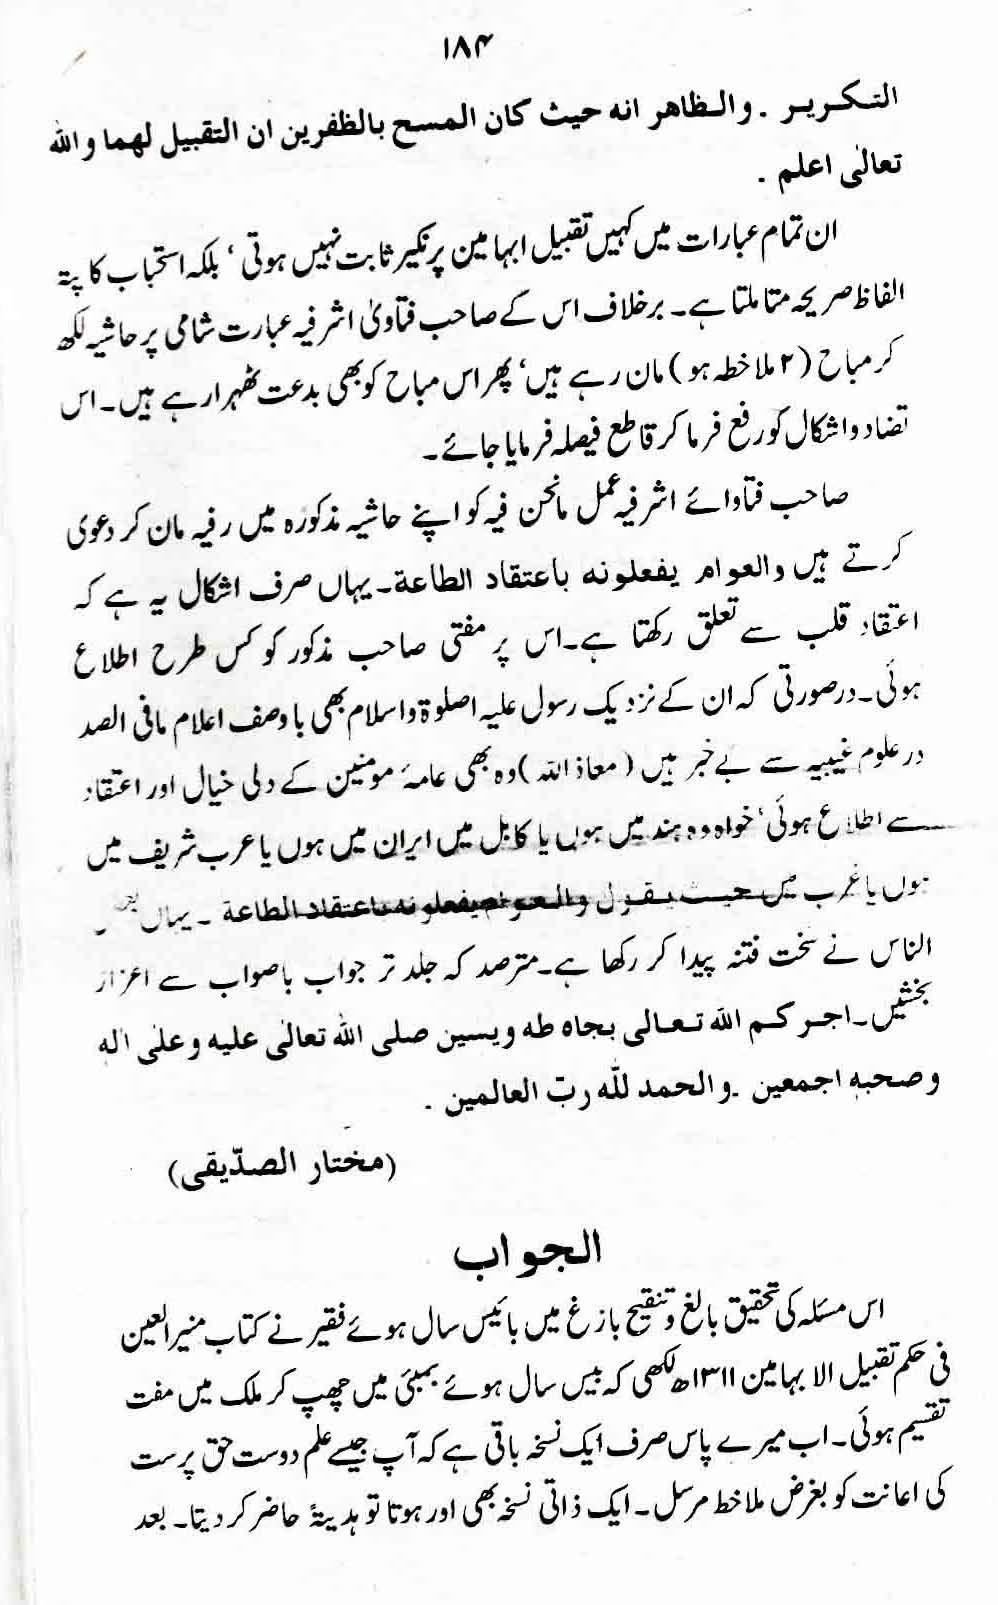 ۱۸۴
التكرير . والظاهر انه حيث كان المسح بالظفرين ان التقبيل لهما والله
تعالٰى اعلم .
ان تمام عبارات میں کہیں تقبیل ابہامین پر نکیر ثابت نہیں ہوتی‘ بلکہ استحباب کا پتہ
الفاظ صریحہ متا ملتا ہے۔ برخلاف اس کے صاحب فتاویٰ اشرفیہ عبارت شامی پر حاشیہ لکھ
کر مباح (۲ ملاخطہ ہو) مان رہے ہیں‘ پھر اس مباح کو بھی بدعت ٹھہرا رہے ہیں۔ اس
تضاد و اشکال کو رفع فرما کر قاطع فیصلہ فرمایا جائے۔
صاحب فتاوائے اشرفیہ عمل مانحن فیہ کو اپنے حاشیہ مذکورہ میں رفیہ مان کر دعوی
کرتے ہیں والعوام يفعلونه باعتقاد الطاعة۔ یہاں صرف اشکال یہ ہے کہ
اعتقاد قلب سے تعلق رکھتا ہے۔ اس پر مفتی صاحب مذکور کو کس طرح اطلاع
ہوئی۔ درصورتی کہ ان کے نزدیک رسول علیہ اصلوۃ واسلام بھی باوصف اعلام مافی الصد
در علوم غیبیہ سے بے خبر ہیں (معاذ اللہ) وہ بھی عامۂ مومنین کے دلی خیال اور اعتقاد
سے اطلاع ہوئی‘ خواہ وہ ہند میں ہوں یا کابل میں ایران میں ہوں یا عرب شریف میں
ہوں یا غرب میں حيث يقول والعوام يفعلونه باعتقاد الطاعة ۔ یہاں بعض
الناس نے سخت فتنہ پیدا کر رکھا ہے۔ مترصد کہ جلد تر جواب باصواب سے اعزاز
بخشیں۔ اجركم الله تعالى بجاه طه ويسين صلى الله تعالىٰ عليه وعلى اله
وصحبه اجمعين .والحمد لله ربّ العالمين .
(مختار الصدّيقى)
الجواب
اس مسئلہ کی تحقیق بالغ و تنقیح بازغ میں بائیس سال ہوئے فقیر نے کتاب منیر العین
فی حکم تقبیل الا بہامین ۱۳۱۱ھ لکھی کہ بیس سال ہوئے بمبئی میں چھپ کر ملک میں مفت
تقسیم ہوئی۔ اب میرے پاس صرف ایک نسخہ باقی ہے کہ آپ جیسے علم دوست حق پرست
کی اعانت کو بغرض ملاخط مرسل۔ ایک ذاتی نسخہ بھی اور ہوتا تو ہدیۃً حاضر کر دیتا۔ بعد